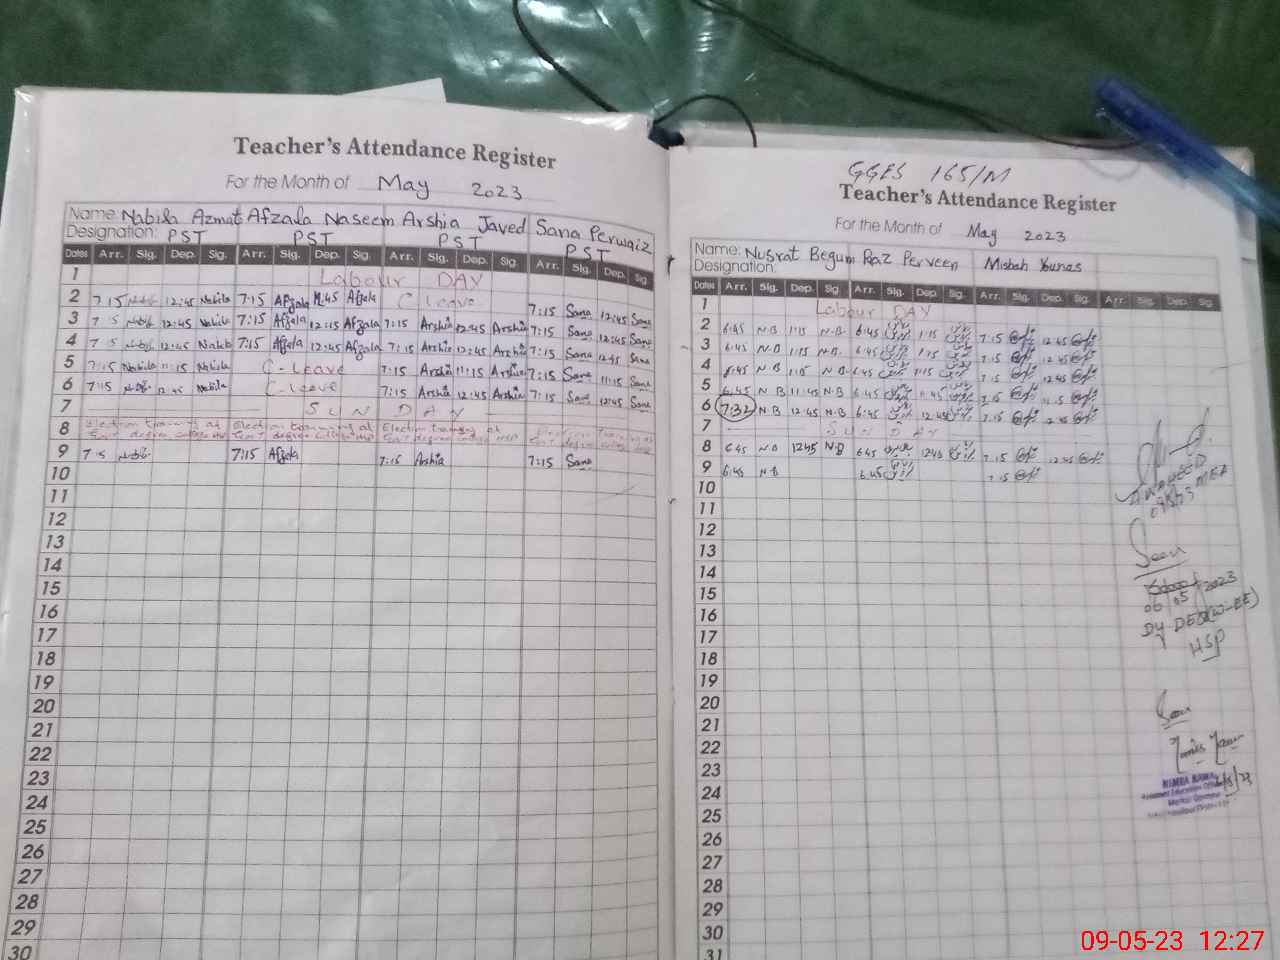 Teacher's Attendance Register
For the Month of May 2023
Name: Nabila Azmat Afzala Naseem Arshia Javed Sana Perwaiz
Designation: PST PST PST PST
Dates Arr. Sig. Dep. Sig. Arr. Sig. Dep. Sig. Arr. Sig. Dep. Sig. Arr. Sig. Dep. Sig.
1 Labour DAY
2 7:15 Nabila 12:45 Nabila 7:15 Afzala Afzala C leave 7:15 Sana 12:45 Sana
3 7:15 Nabila 12:45 Nabila 7:15 Afzala 12:15 Afzala 7:15 Arshia 12:45 Arshia 7:15 Sana 12:45 Sana
4 7:15 Nabila 12:45 Nabila 7:15 Afzala 12:45 Afzala 7:15 Arshia 12:45 Arshia 7:15 Sana 12:45 Sana
5 7:15 Nabila 11:15 Nabila C-Leave 7:15 Arshia 11:15 Arshia 7:15 Sana 11:15 Sana
6 7:15 Nabila 12:45 Nabila C-leave 7:15 Arshia 12:45 Arshia 7:15 Sana 12:45 Sana
7 SUN DAY
8 Election training at Govt degree college Election training at Govt degree college Election training at Govt degree college Election Training at Govt degree college
9 7:15 Nabila 7:15 Afzala 7:15 Arshia 7:15 Sana
10
11
12
13
14
15
16
17
18
19
20
21
22
23
24
25
26
27
28
29
30
GGES 165/M
Teacher's Attendance Register
For the Month of May 2023
Name: Nusrat Begum Raz Perveen Misbah Younas
Designation:
Dates Arr. Sig. Dep. Sig. Arr. Sig. Dep. Sig. Arr. Sig. Dep. Sig. Arr. Sig. Dep. Sig.
1 Labour DAY
2 6:45 N.B 1:15 N.B. 6:45 1:15 7:15 12:45
3 6:45 N.B 1:15 N.B. 6:45 1:15 7:15 12:45
4 6:45 N.B 1:15 N.B 6:45 1:15 7:15 12:45
5 6:45 N.B 11:45 N.B 6:45 11:45 7:15 11:15
6 7:32 N.B 12:45 N.B 6:45 12:45 7:15 12:45
7 SUN DAY
8 6:45 N.B 12:45 N.B 6:45 12:45 7:15 12:45
9 6:45 N.B 6:45 7:15
10
11
12
13
14
15
16
17
18
19
20
21
22
23
24
25
26
27
28
29
30
31
Seen
06/05/2023
Dy DEO(W-EE)
HSP
Seen
09-05-23 12:27